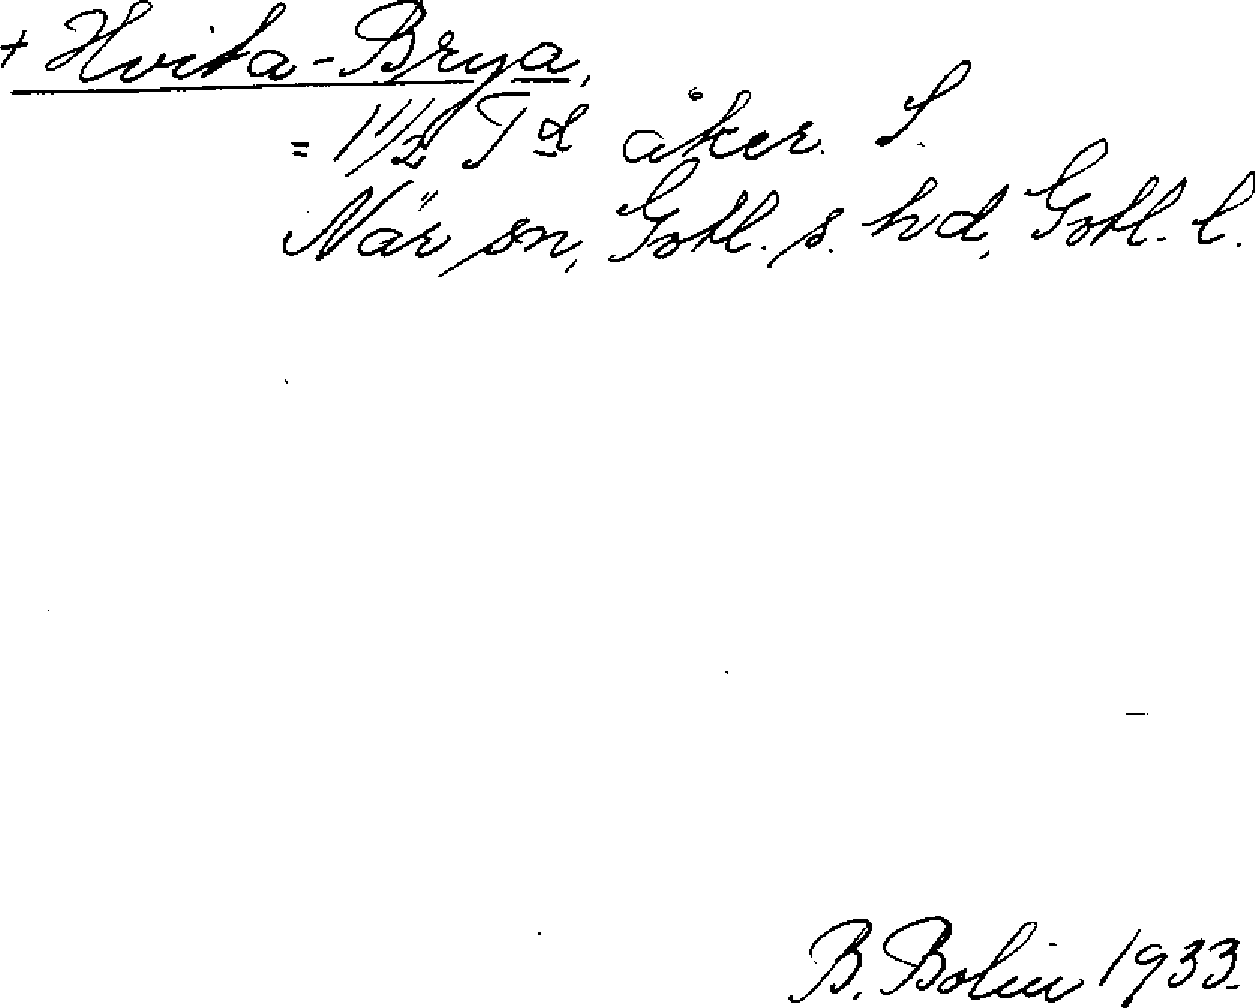 + Hvita-Brya,
= 1 1/2 Td åker. S.
När sn, Gotl. s. hd, Gotl. l.
B. Bolin 1933.